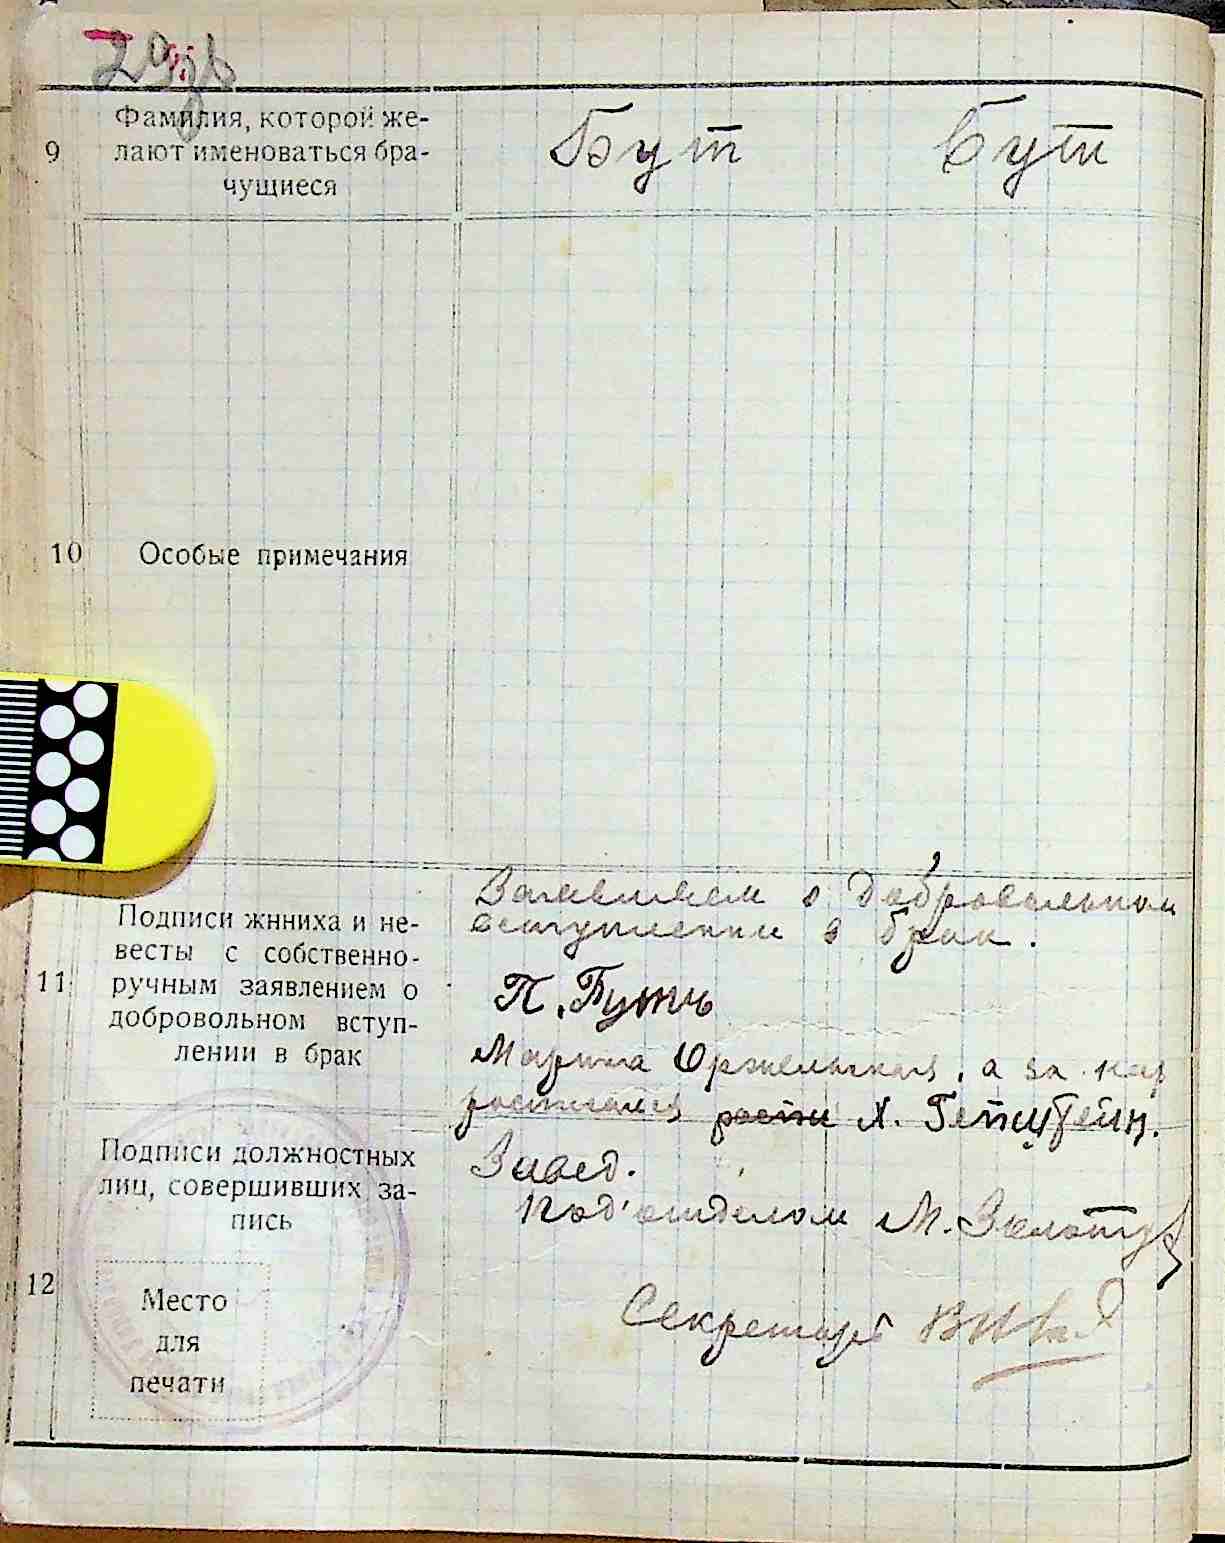 29
9
Фамилия, которой же-
лают именоваться бра-
чущиеся
Бут
Бут
10
Особые примечания
11
Подписи жнниха и не-
весты с собственно-
ручным заявлением о
добровольном вступ-
лении в брак
Заявляем о добровольном
вступлении в брак.
П. Бутъ
Марина Оржельская, а за нея
росписался роспи Х. Гепштейн.
12
Подписи должностных
лиц, совершивших за-
пись
Место
для
печати
Завед.
Под'отделом М. Золоту
Секретарь